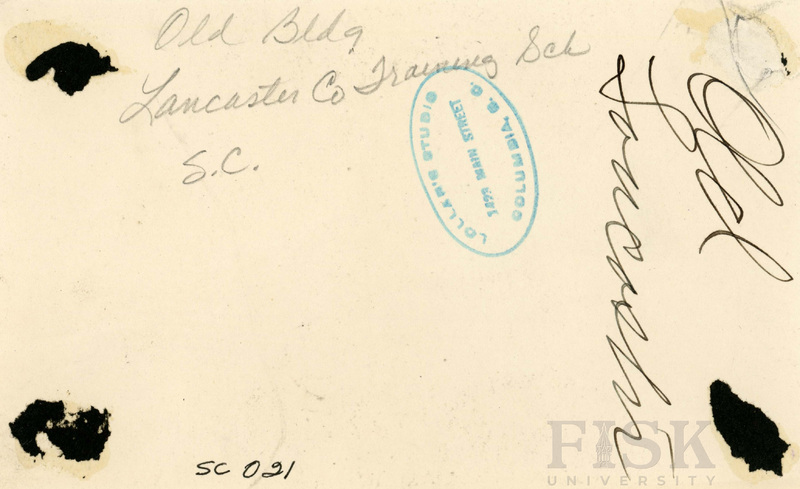 Old Bldg
Lancaster Co Training Sch
S.C.
LOLLAR'S STUDIO
MAIN STREET
COLUMBIA, S. C.
Old
Lancaster
SC 021
FISK
UNIVERSITY